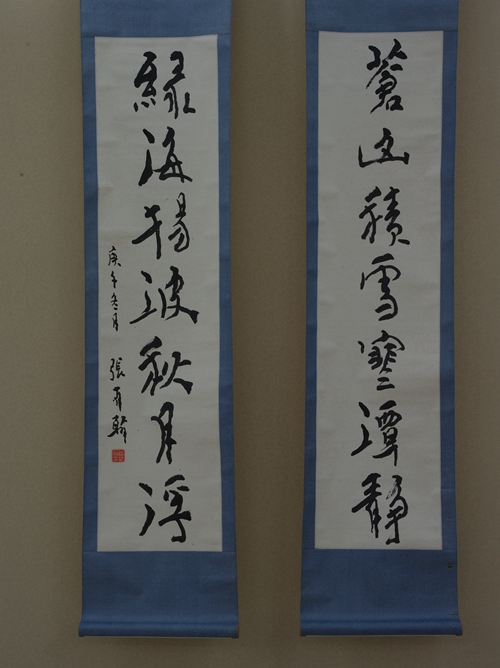 蒼山積雪寒潭靜
綠海揚波秋月浮
庚午冬月 張